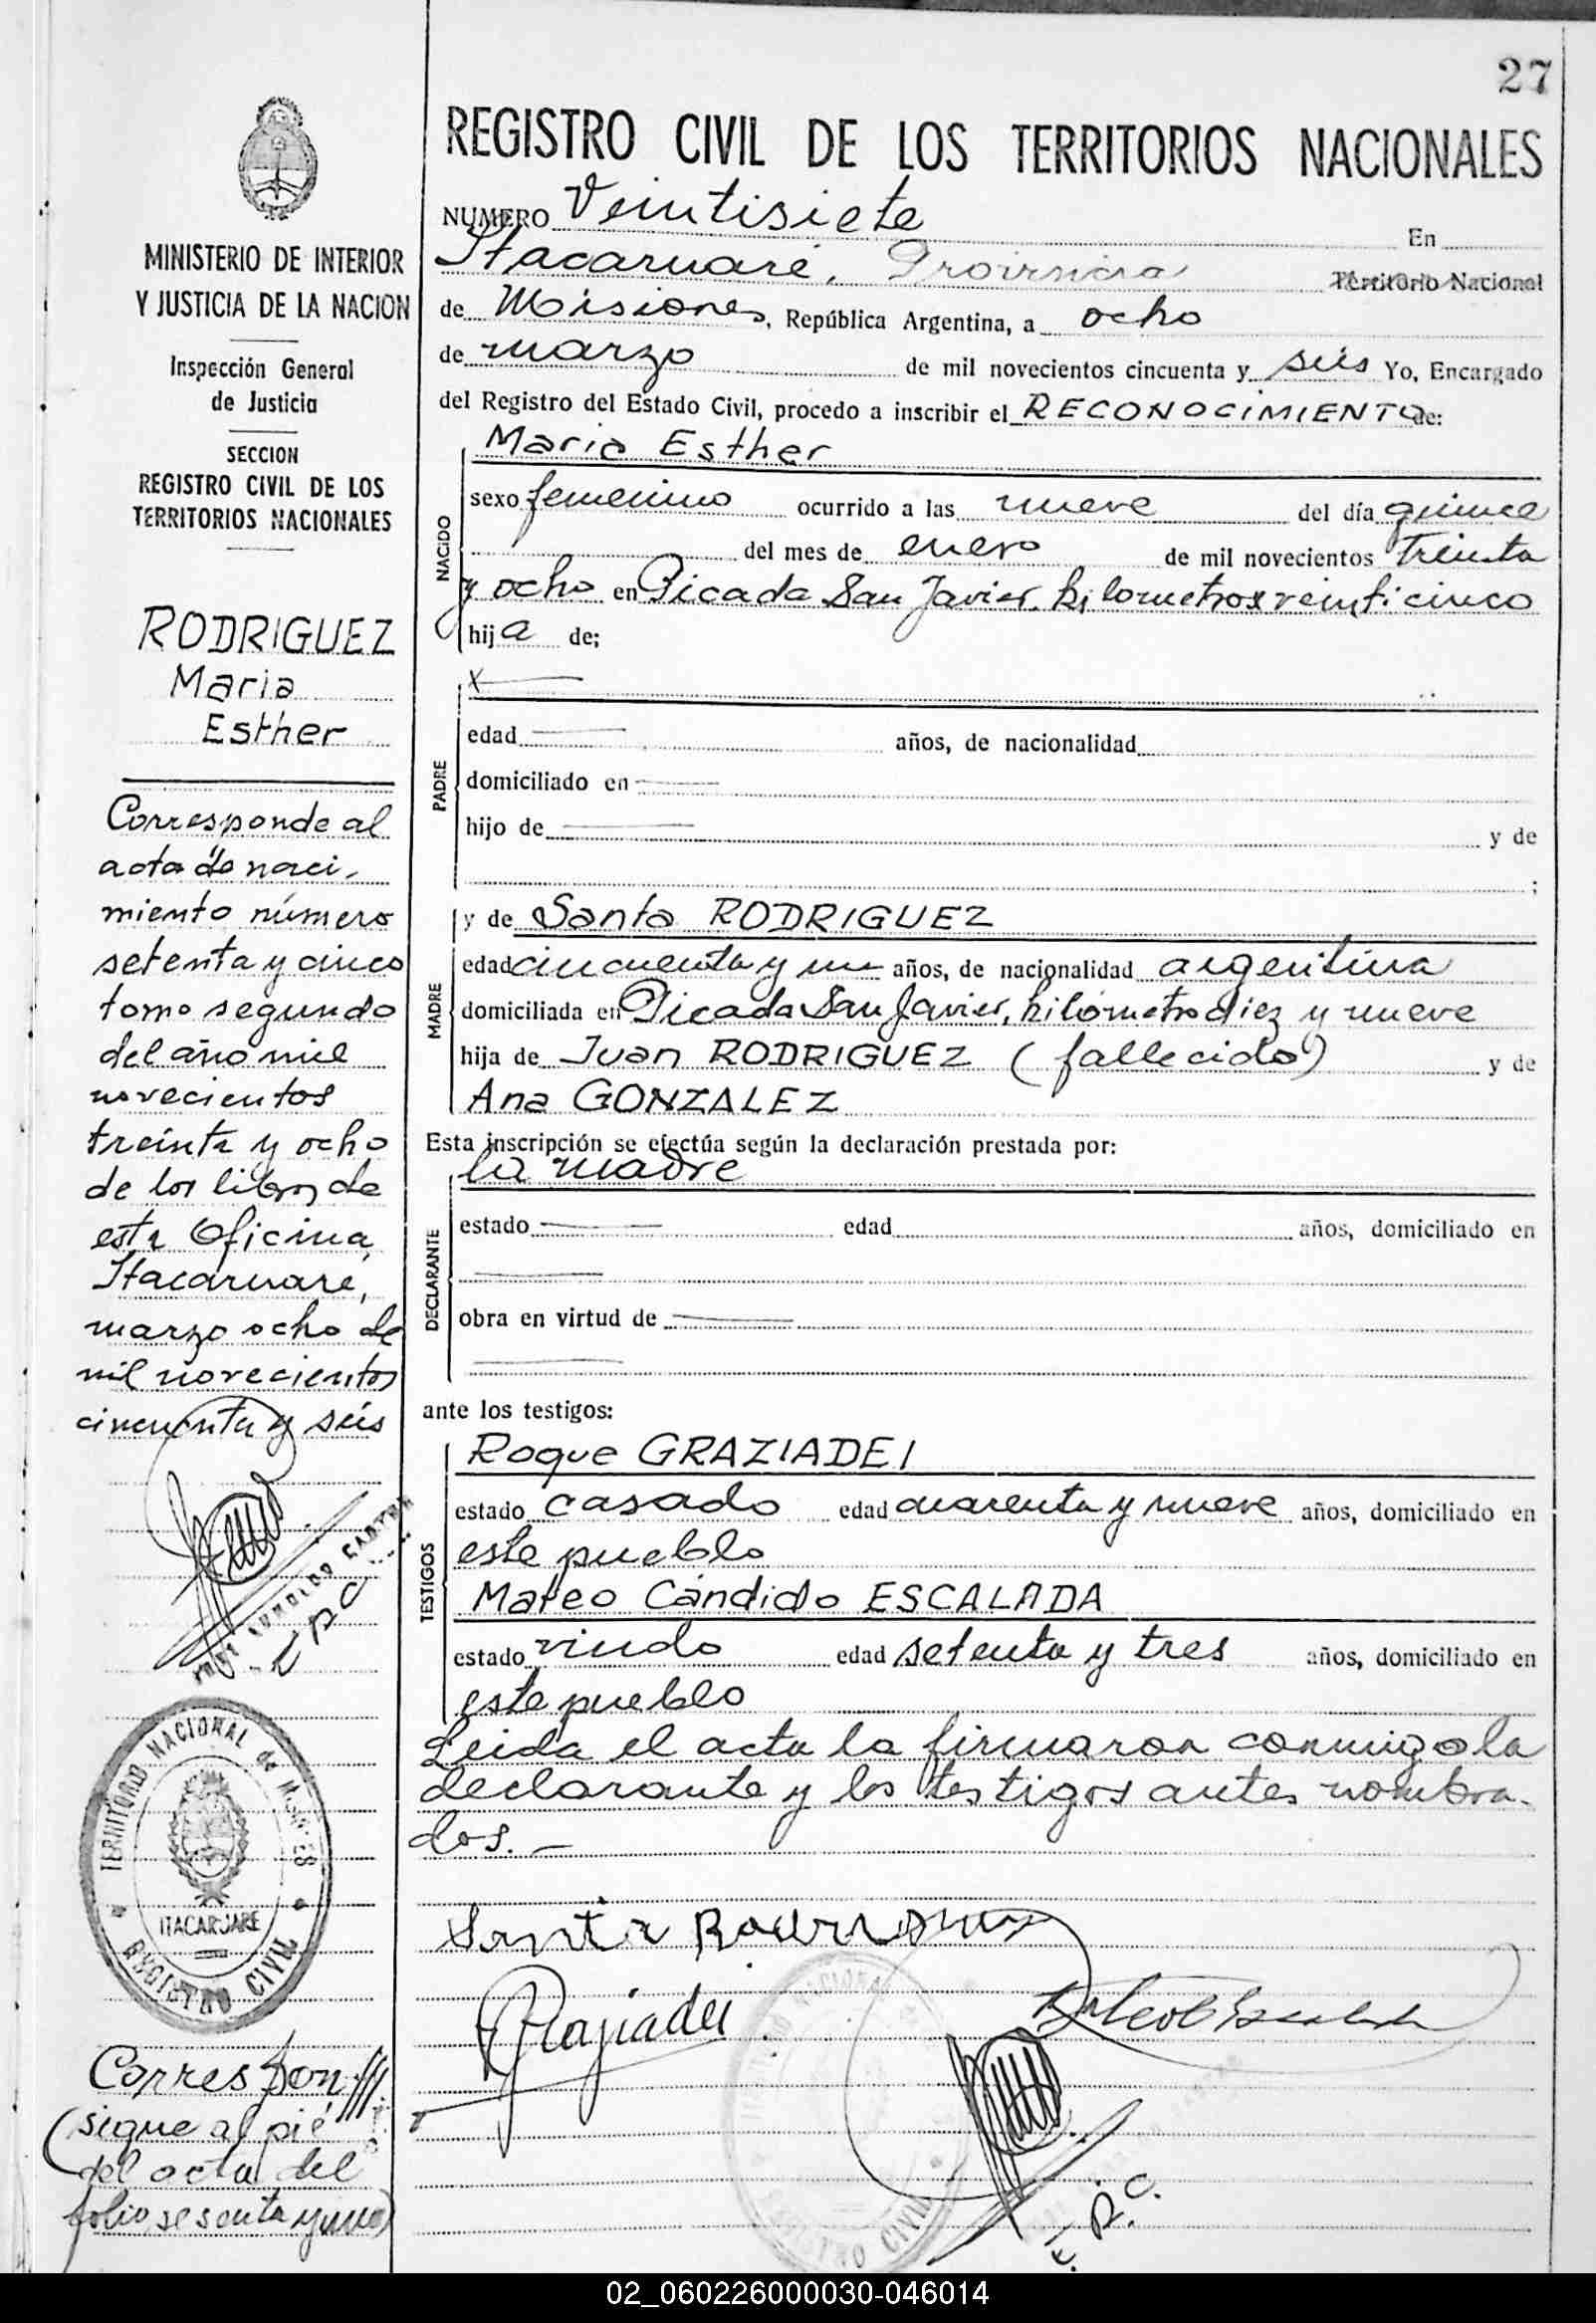 27
REGISTRO CIVIL DE LOS TERRITORIOS NACIONALES
NUMERO Veintisiete En
Itacaruaré, Provincia Territorio Nacional
de Misiones, República Argentina, a ocho
de marzo de mil novecientos cincuenta y seis Yo, Encargado
del Registro del Estado Civil, procedo a inscribir el RECONOCIMIENTO de:
NACIDO
Maria Esther
sexo femenino ocurrido a las nueve del día quince
del mes de enero de mil novecientos treinta
y ocho en Picada San Javier, kilometros veinticinco
hija de;
PADRE
x
edad años, de nacionalidad
domiciliado en
hijo de y de
;
MADRE
y de Santa RODRIGUEZ
edad cincuenta y un años, de nacionalidad argentina
domiciliada en Picada San Javier, kilómetro diez y nueve
hija de Juan RODRIGUEZ (fallecido) y de
Ana GONZALEZ
Esta inscripción se efectúa según la declaración prestada por:
DECLARANTE
la madre
estado edad años, domiciliado en
obra en virtud de
ante los testigos:
TESTIGOS
Roque GRAZIADEI
estado casado edad cuarenta y nueve años, domiciliado en
este pueblo
Mateo Cándido ESCALADA
estado viudo edad setenta y tres años, domiciliado en
este pueblo
Leida el acta la firmaron conmigo la
declarante y los testigos antes nombra-
dos.-
Santa
Graziadei
E. R. C.
MINISTERIO DE INTERIOR
Y JUSTICIA DE LA NACION
Inspección General
de Justicia
SECCION
REGISTRO CIVIL DE LOS
TERRITORIOS NACIONALES
RODRIGUEZ
Maria
Esther
Corresponde al
acta de naci-
miento número
setenta y cinco
tomo segundo
del año mil
novecientos
treinta y ocho
de los libros de
esta Oficina,
Itacaruaré,
marzo ocho de
mil novecientos
cincuenta y seis
E R C
TERRITORIO NACIONAL de MISIONES
ITACARUARE
REGISTRO CIVIL
Correspon
(sigue al pié
del acta del
folio sesenta y uno)
02_060226000030-046014